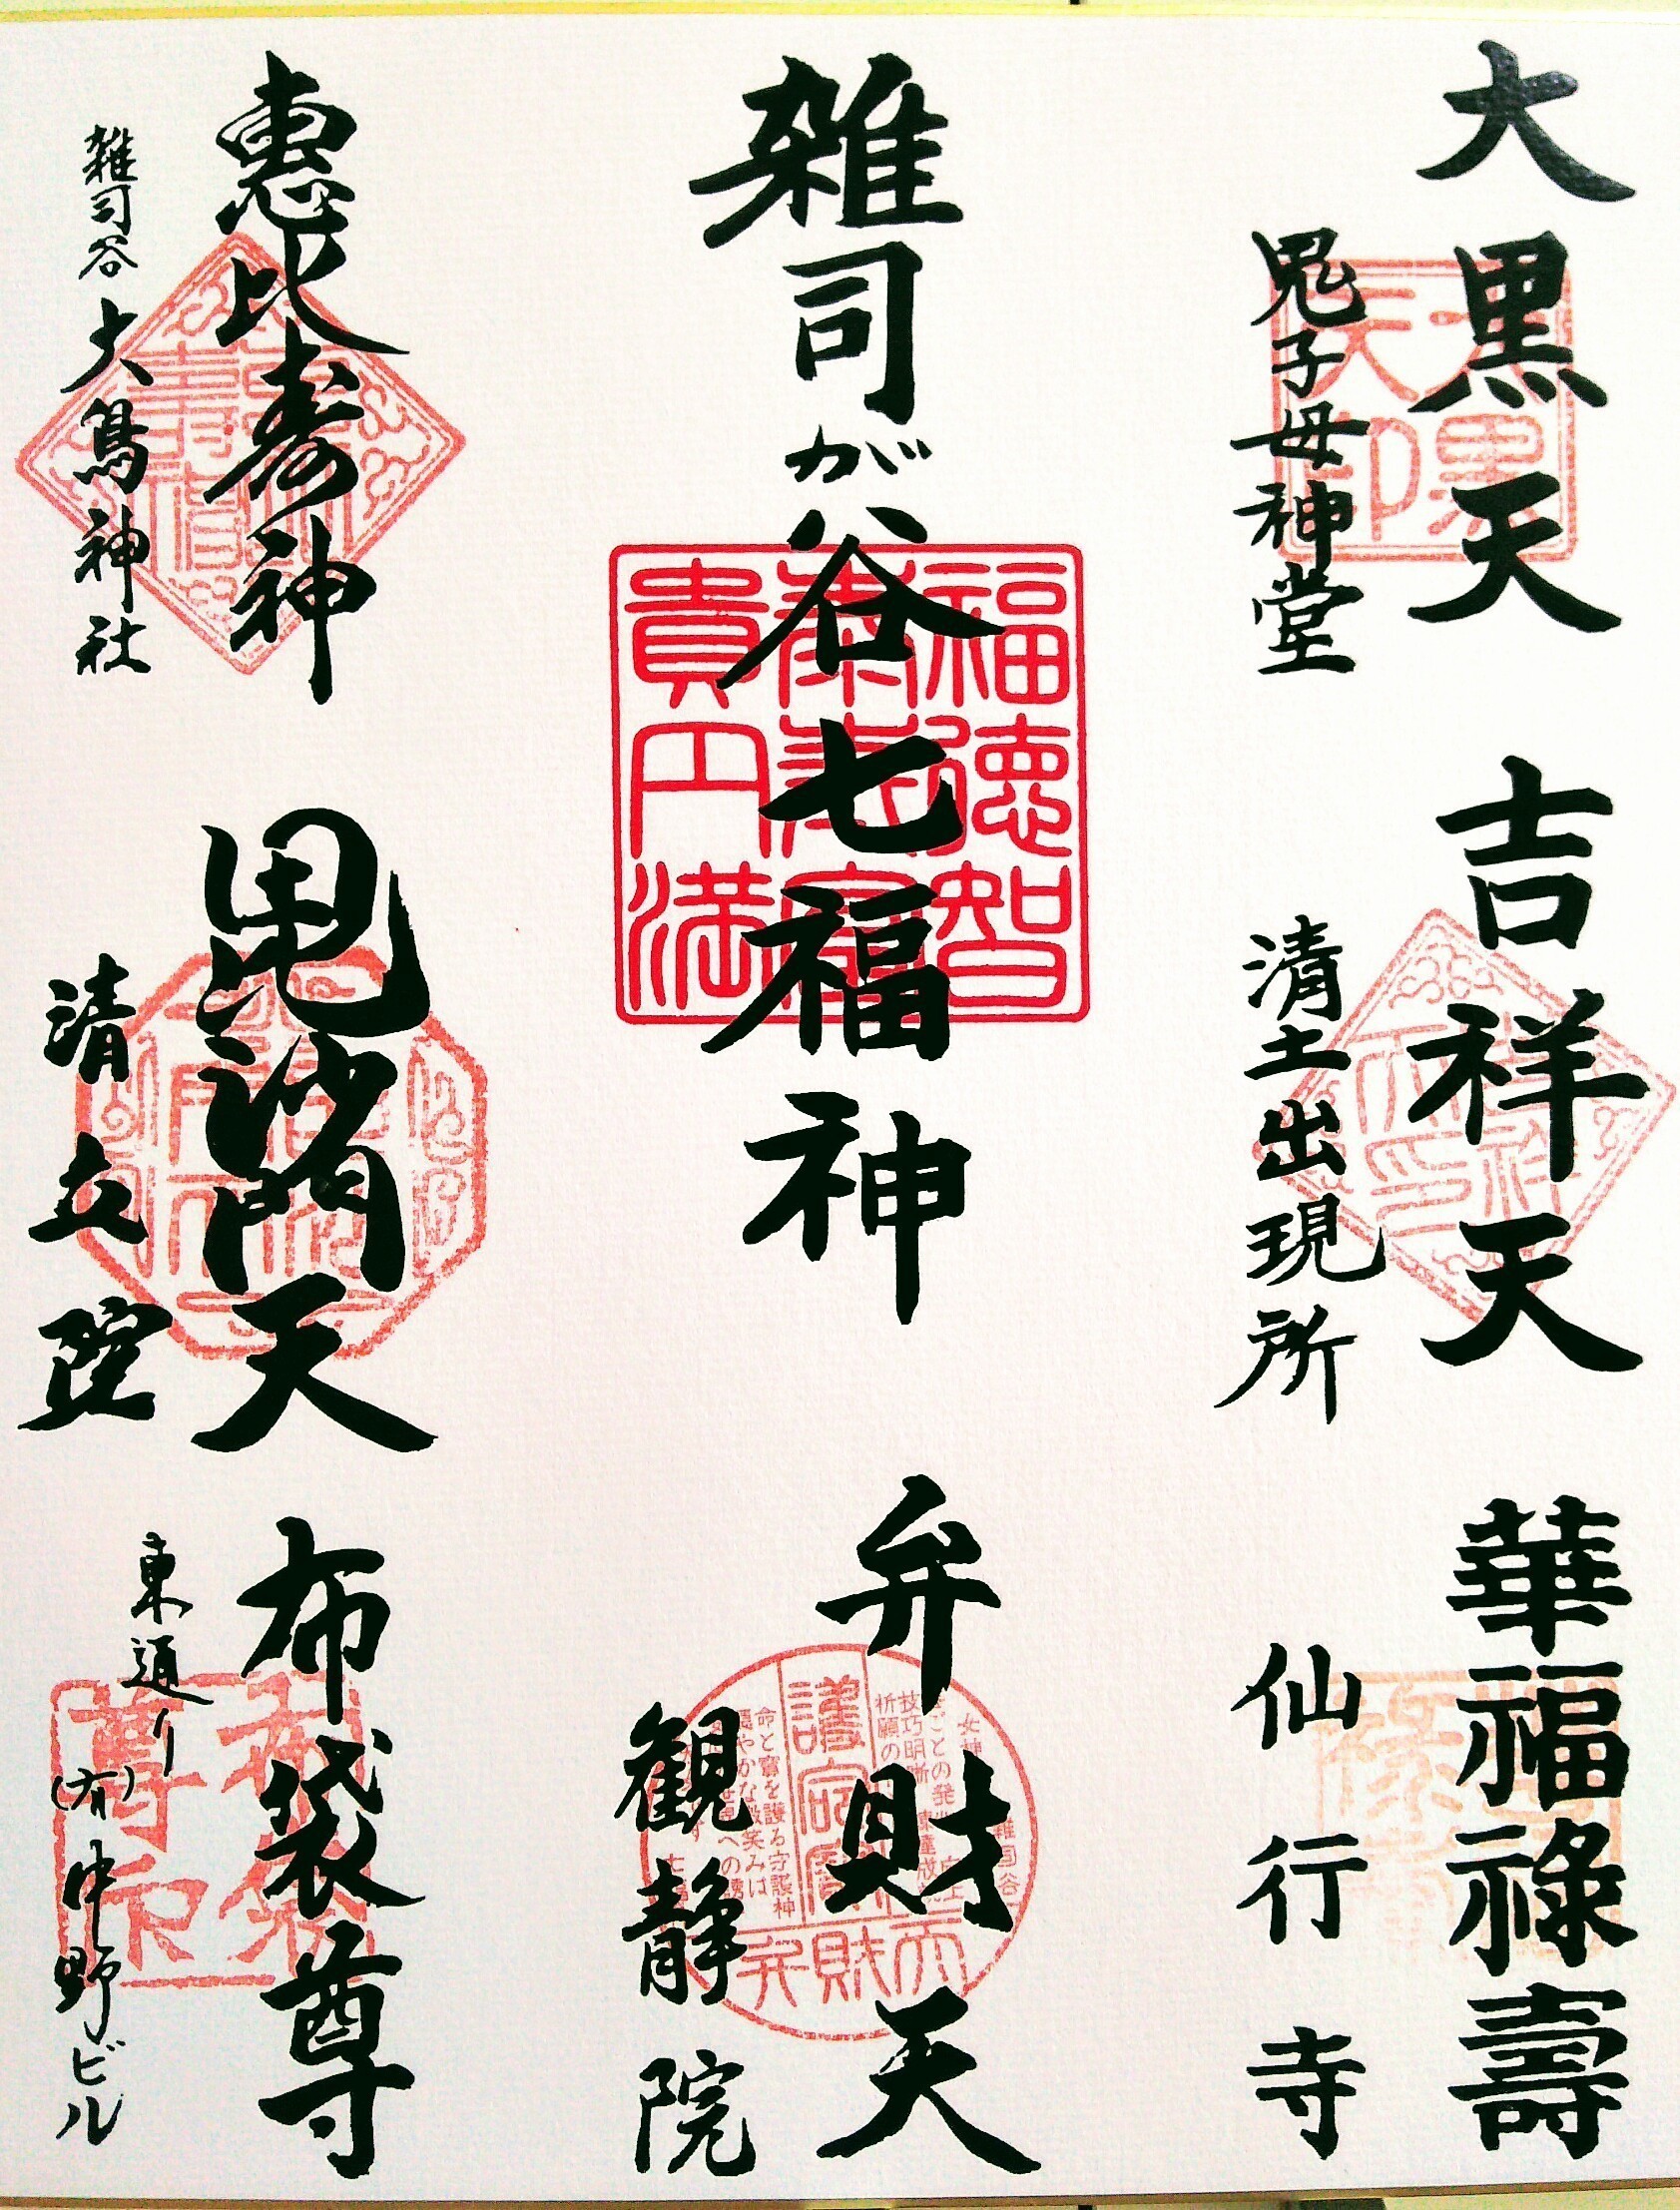 大黒天
鬼子母神堂
大黒天印
吉祥天
清土出現所
華福禄壽
仙行寺
雑司が谷七福神
福徳智
貴円満
弁財天
観静院
護符
弁財天
恵比寿神
雑司谷大鳥神社
毘沙門天
清立院
布袋尊
東通り
(有)中野ビル
布袋尊印